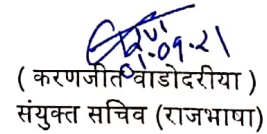 01-09-21
( करणजीत वाडोदरीया )
संयुक्त सचिव (राजभाषा)